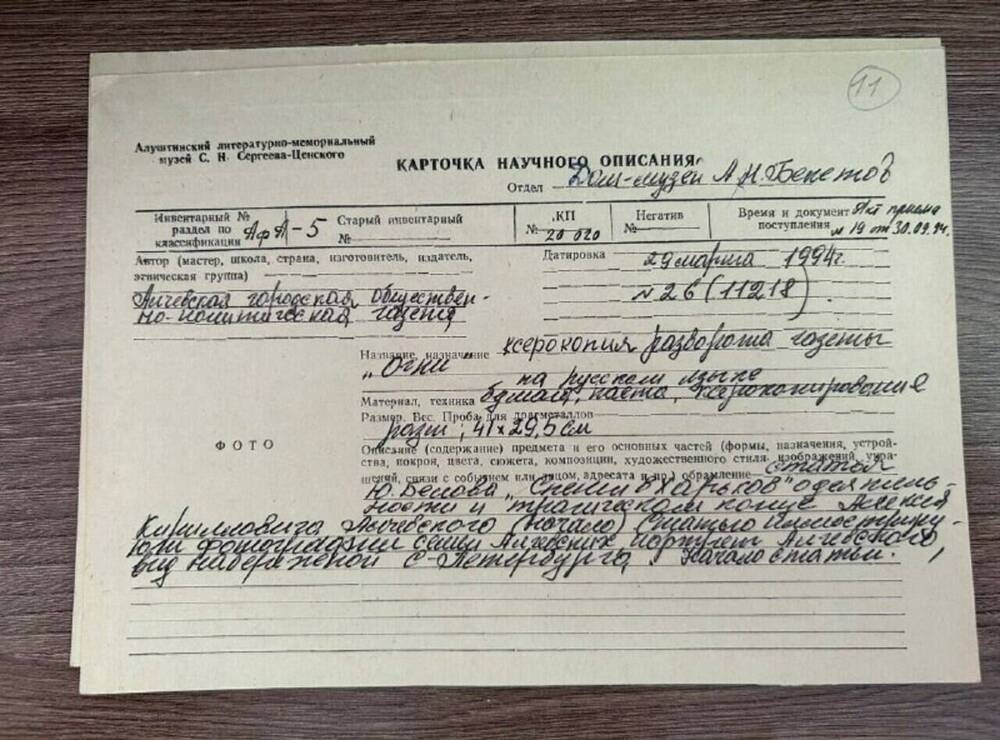 11
Алуштинский литературно-мемориальный
музей С. Н. Сергеева-Ценского
КАРТОЧКА НАУЧНОГО ОПИСАНИЯ
Отдел Дом-музей А.Н.Бекетов
Инвентарный №
раздел по
классификации АфА-5
Старый инвентарный
№
КП
№ 20 020
Негатив
№
Время и документ Акт приема
поступления № 19 от 30.09.94.
Автор (мастер, школа, страна, изготовитель, издатель,
этническая группа)
Алчевская городская обществен-
но-политическая газета
Датировка 29 марта 1994г.
№ 26 (11218)
Название, назначение ксерокопия разворота газеты
„Огни" на русском языке
Материал, техника бумага, паста, ксерокопирование
Размер. Вес. Проба для драгметаллов
разм; 41х29,5 см
ФОТО
Описание (содержание) предмета и его основных частей (формы, назначения, устрой-
ства, покроя, цвета, сюжета, композиции, художественного стиля, изображений, укра-
шений, связи с событием или лицом, адресата и др.) обрамление статья
Ю. Белова „Спешил в Харьков" о деятель-
ности и трагическом конце Алексея
Кирилловича Алчевского (начало) Статью иллюстриру-
ют фотографии семьи Алчевских портрет Алчевского,
вид набережной С-Петербурга, Начало статьи.